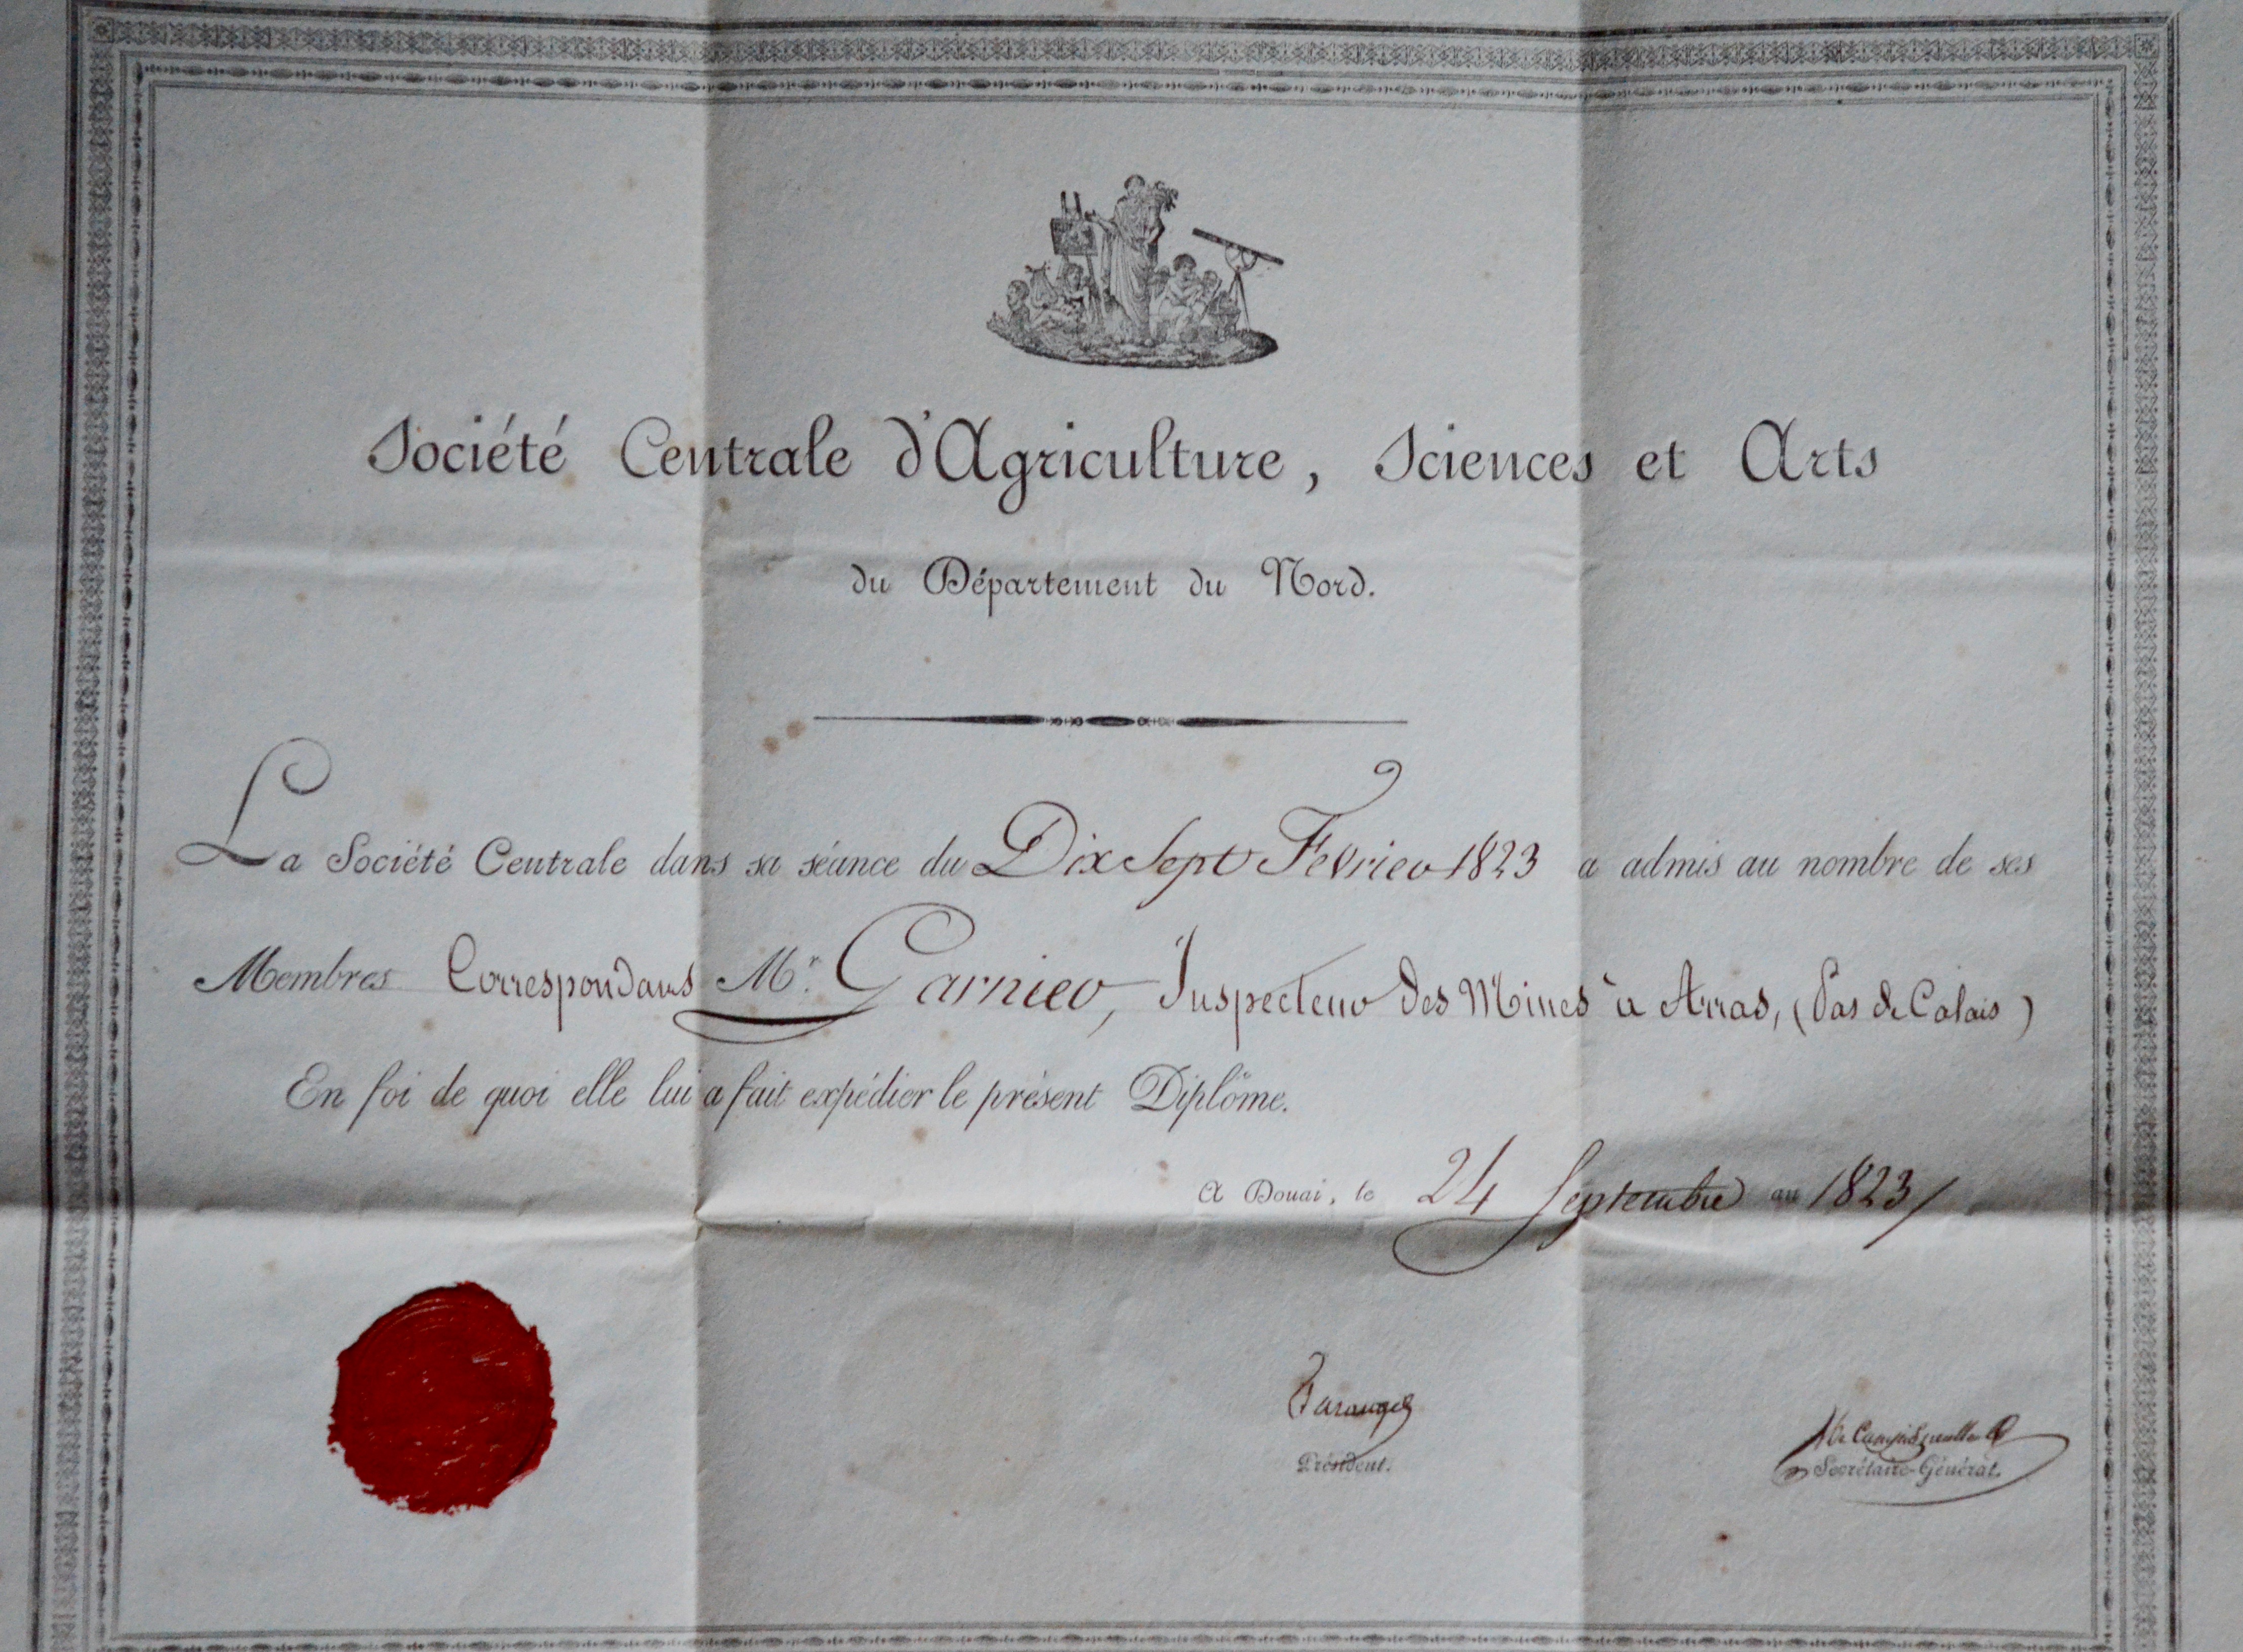 Société Centrale d'Agriculture, Sciences et Arts
du Département du Nord.
La Société Centrale dans sa séance du Dix Sept Fevrier 1823 a admis au nombre de ses
Membres Correspondans Mr. Garnier, Inspecteur des Mines à Arras, (Pas de Calais)
En foi de quoi elle lui a fait expédier le présent Diplôme.
A Douai, le 24 Septembre an 1823
Taranget
Président.
Secrétaire-Général.